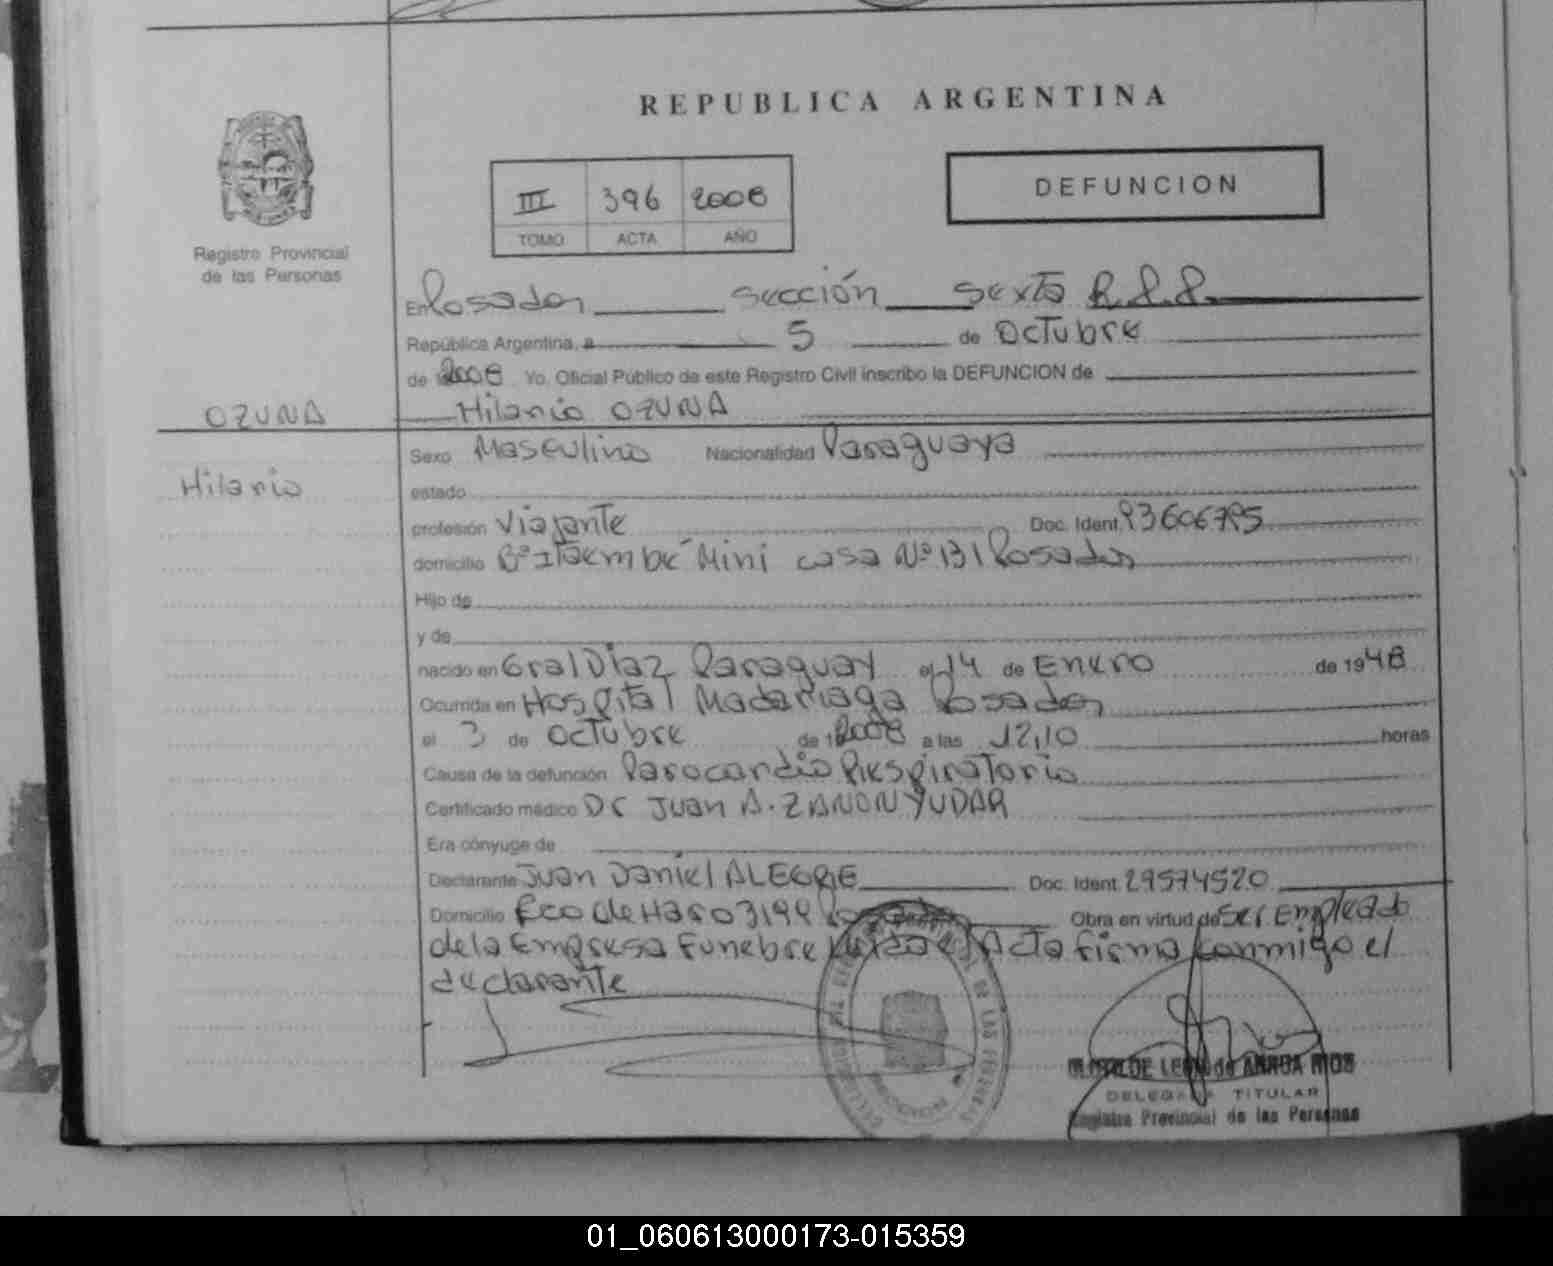 REPUBLICA ARGENTINA
Registro Provincial
de las Personas
III 396 2008
TOMO ACTA AÑO
DEFUNCION
En Posadas sección sexta R.P.P.
República Argentina, a 5 de Octubre
de 2008 Yo. Oficial Público de este Registro Civil inscribo la DEFUNCION de
OZUNA
Hilario OZUNA
Hilario
Sexo Masculino Nacionalidad Paraguaya
estado
profesión Viajante Doc. Ident. 93606795
domicilio Bº Itaembé Mini casa Nº 131 Posadas
Hijo de
y de
nacido en Gral Diaz Paraguay el 14 de Enero de 1948
Ocurrida en Hospital Madariaga Posadas
el 3 de Octubre de 2008 a las 12,10 horas
Causa de la defunción Parocardio Respiratorio
Certificado médico Dr Juan A. ZANON YUDAR
Era cónyuge de
Declarante Juan Daniel ALEGRE Doc. Ident. 29574520
Domicilio Fco de Haro 3199 Posadas Obra en virtud de Ser Empleado
de la Empresa Funebre Leida el Acta firma conmigo el
declarante
DE LAS PERSONAS
de ARRUA RIOS
DELEGADA TITULAR
Registro Provincial de las Personas
01_060613000173-015359